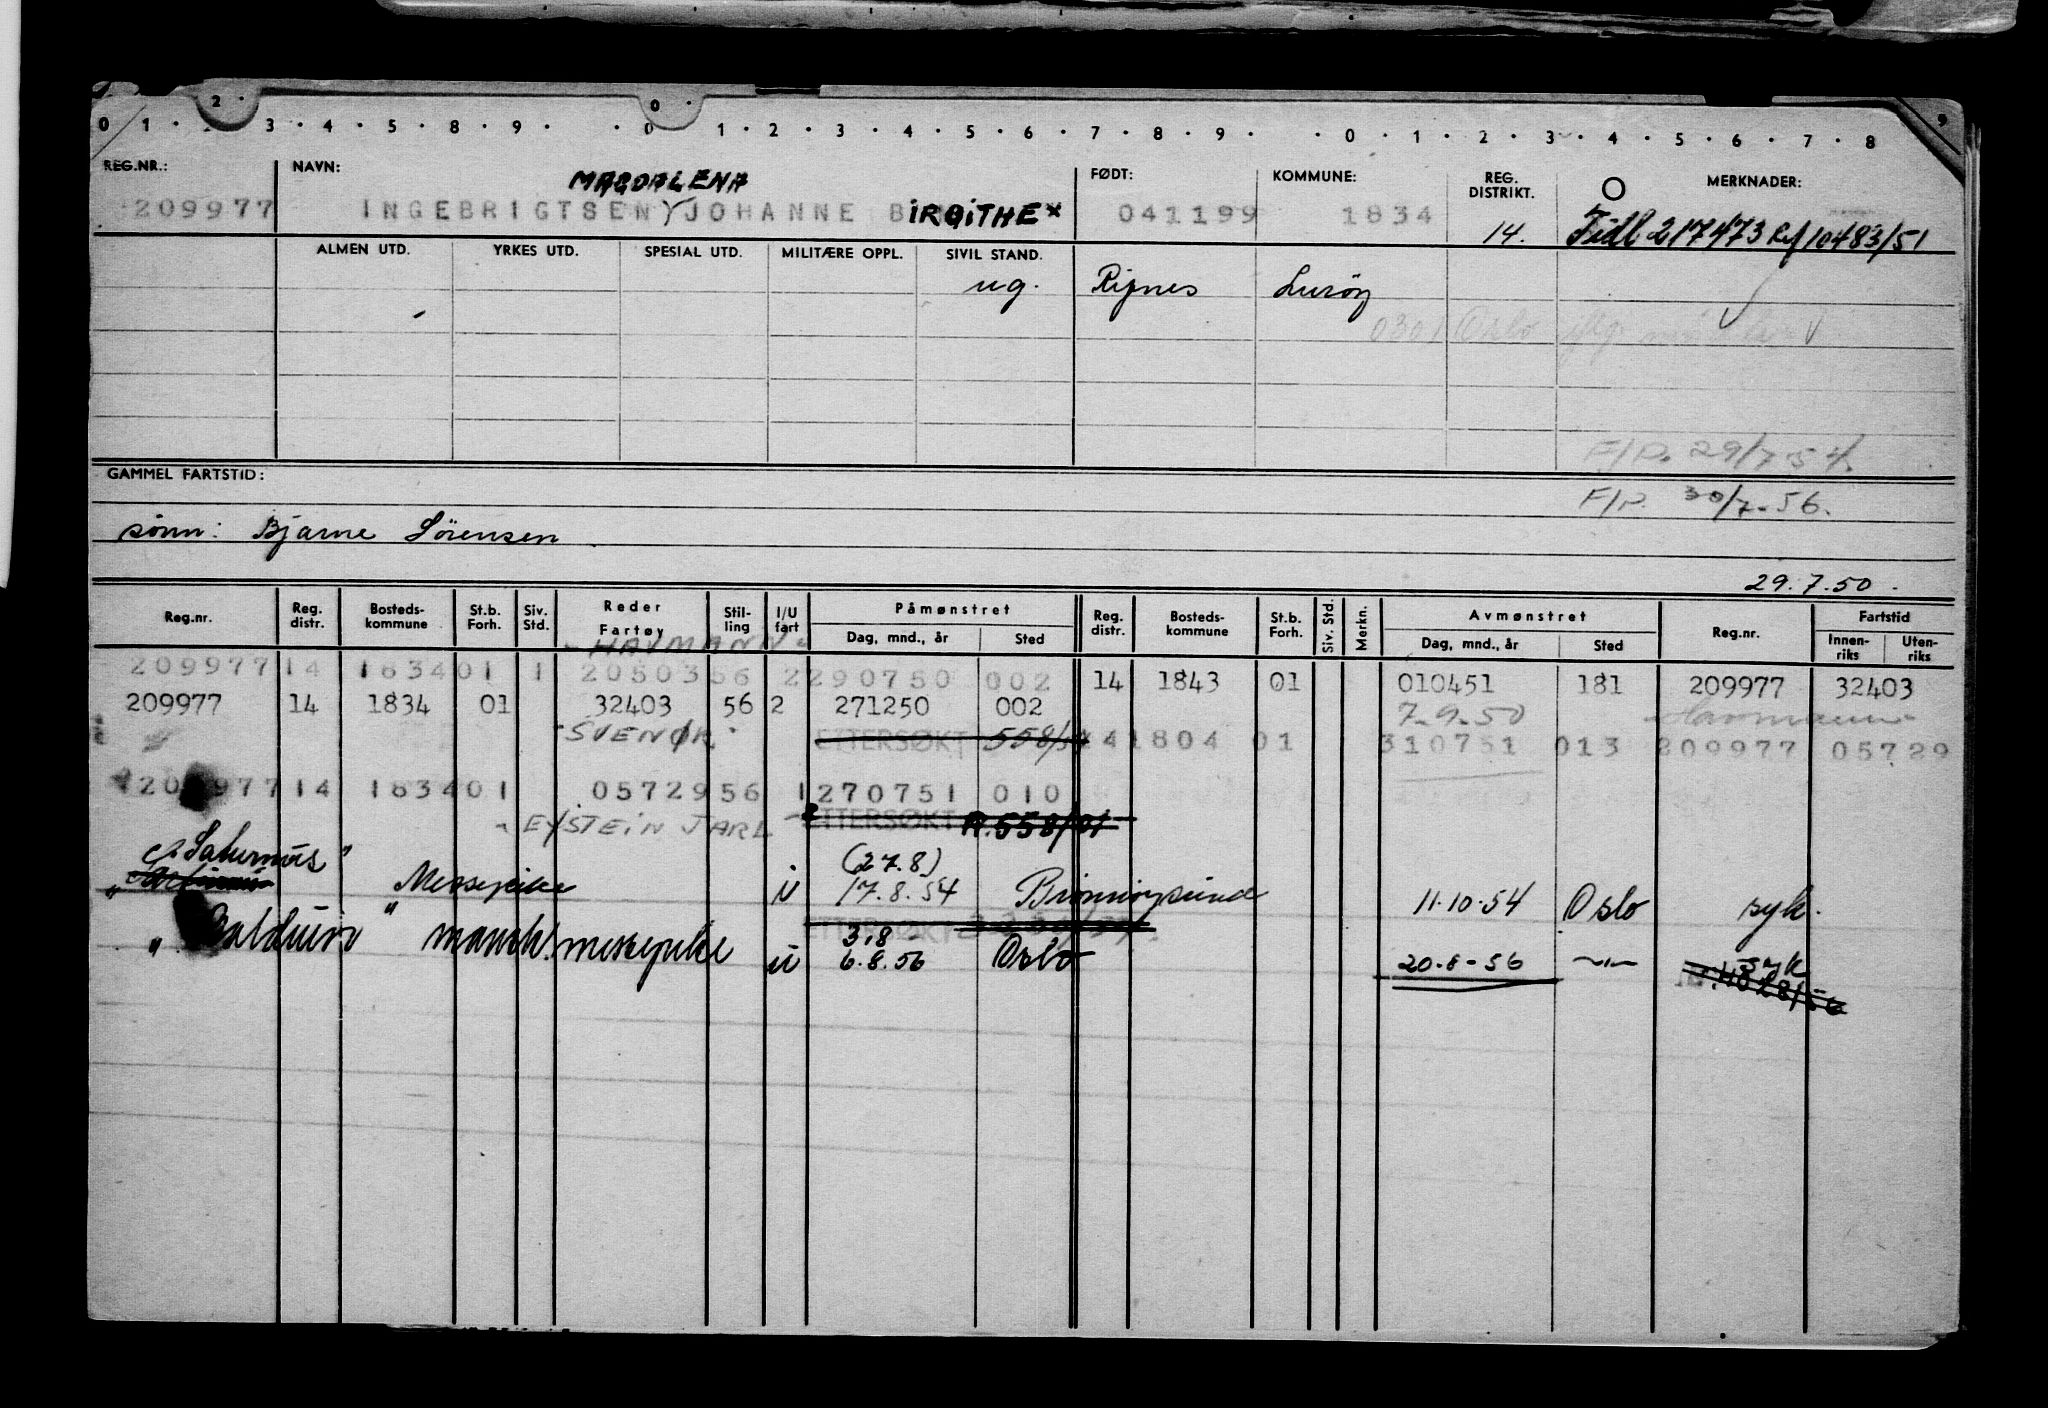 0 1 · 2 · 3 · 4 · 5 · 8 · 9 · · 0 · 1 · 2 · 3 · 4 · 5 · 6 · 7 · 8 · 9 · · 0 · 1 · 2 · 3 · 4 · 5 · 6 · 7 · 8 9
REG.NR.: NAVN: FØDT: KOMMUNE: REG. DISTRIKT. MERKNADER:
MAGDALENA
209977 INGEBRIGTSEN JOHANNE BIRGITHE x 041199 1834 14. Tidl 217473 Ref 10483/51
ALMEN UTD. YRKES UTD. SPESIAL UTD. MILITÆRE OPPL. SIVIL STAND.
ug. Lurøy
0301 Oslo iflg.
F/P. 29/7-54.
GAMMEL FARTSTID:
F/P. 30/7-56.
sønn: Bjarne Sørensen
29.7.50.
Reg.nr. Reg. distr. Bosteds-kommune St.b. Forh. Siv. Std. Reder Fartøy Stil-ling I/U fart Påmønstret Dag, mnd., år Sted Reg. distr. Bosteds-kommune St.b. Forh. Siv. Std. Merkn. Avmønstret Dag, mnd., år Sted Reg.nr. Fartstid Innen-riks Uten-riks
- HAVMANN -
209977 14 1834 01 1 20503 56 2 290750 002 14 1843 01 010451 181 209977 32403
209977 14 1834 01 32403 56 2 271250 002 7-9-50 Havmann
"SVENØR" ETTERSØKT 558/51 14 1804 01 310751 013 209977 05729
209977 14 1834 01 05729 56 1 270751 010
- EYSTEIN JARL - ETTERSØKT R.558/51
"Saturnus" (27.8)
Messepike u 17.8.54 Brønnøysund 11-10-54 Oslo syk.
ETTERSØKT 3.8
"Balduin" mannsk. messepike u 6.8.56 Oslo 20-8-56 -"- syk